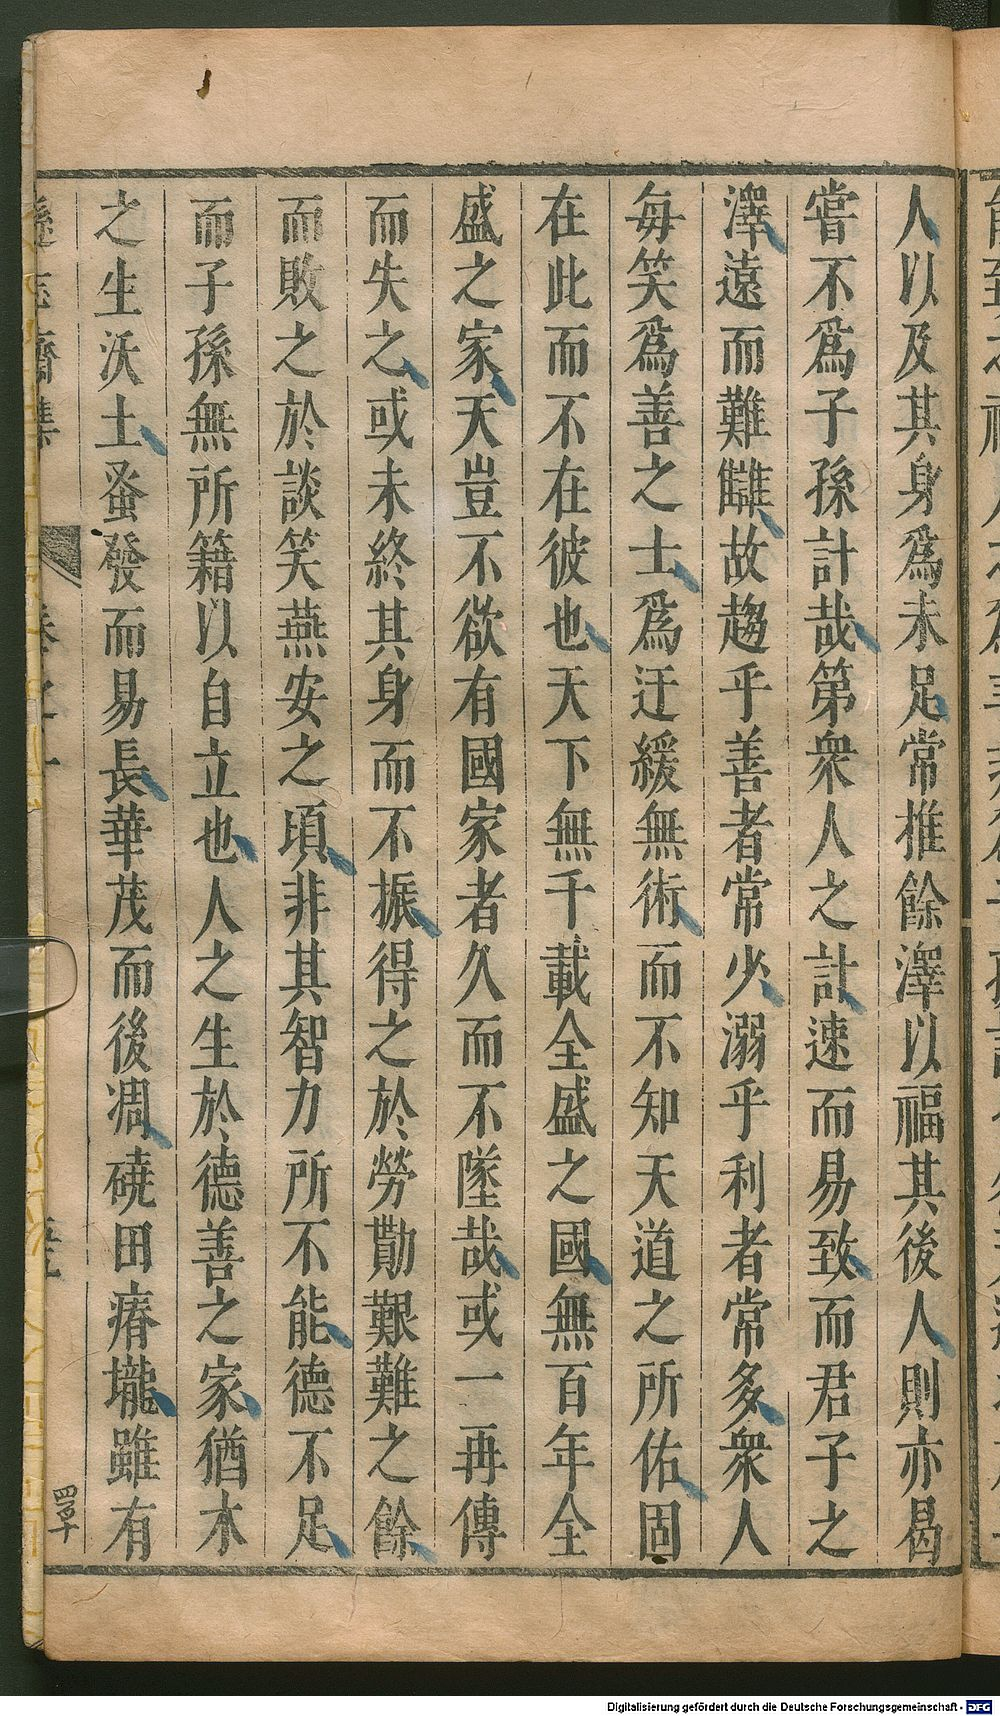 人以及其身爲未足常推餘澤以福其後人則亦曷
嘗不爲子孫計哉第衆人之計速而易致而君子之
澤遠而難讎故趨乎善者常少溺乎利者常多衆人
每笑爲善之士爲迂緩無術而不知天道之所佑固
在此而不在彼也天下無千載全盛之國無百年全
盛之家天豈不欲有國家者久而不墜哉或一再傳
而失之或未終其身而不振得之於勞勩艱難之餘
而敗之於談笑燕安之頃非其智力所不能德不足
而子孫無所籍以自立也人之生於德善之家猶木
之生沃土蚤發而易長華茂而後凋磽田瘠壠雖有
遜志齋集
Digitalisierung gefördert durch die Deutsche Forschungsgemeinschaft - DFG